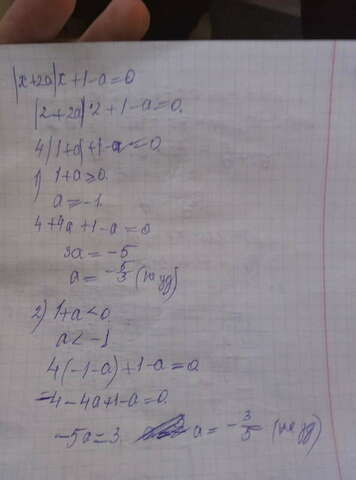 |x+2a|x+1-a=0
|2+2a|·2+1-a=0.
4|1+a|+1-a=0
1) 1+a≥0.
a≥-1.
4+4a+1-a=0
3a=-5
a=-5/3 (не уд)
2) 1+a<0.
a<-1
4(-1-a)+1-a=0
-4-4a+1-a=0.
-5a=3 a=-3/5 (не уд)